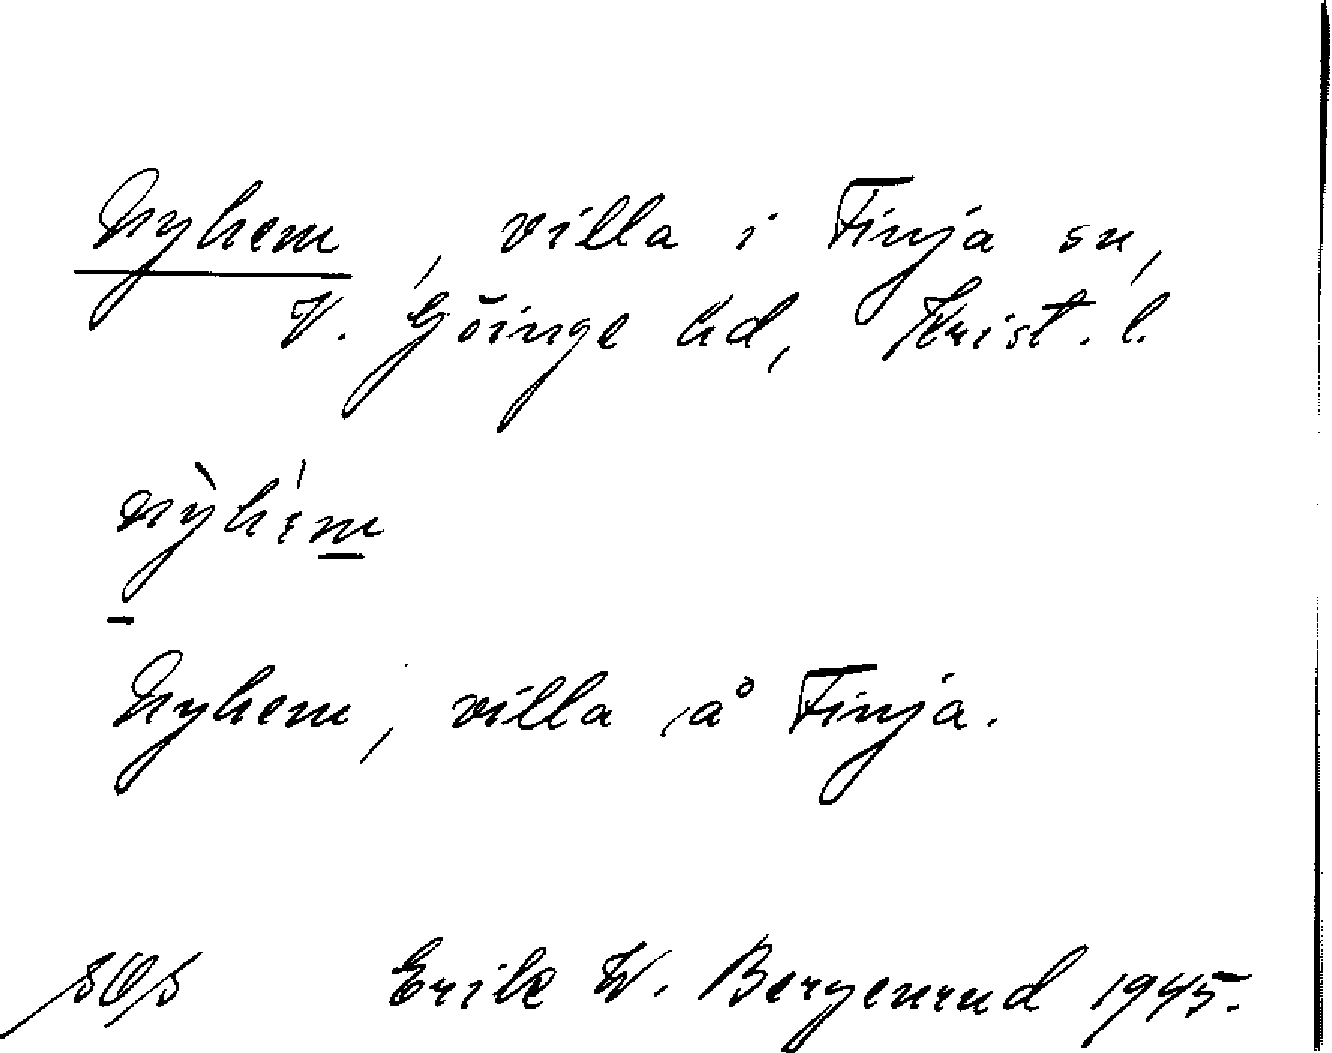 Nyhem, villa i Finja sn,
V. Göinge hd, Krist. l.
Nyhem, villa å Finja.
Erik W. Bergenrud 1945.